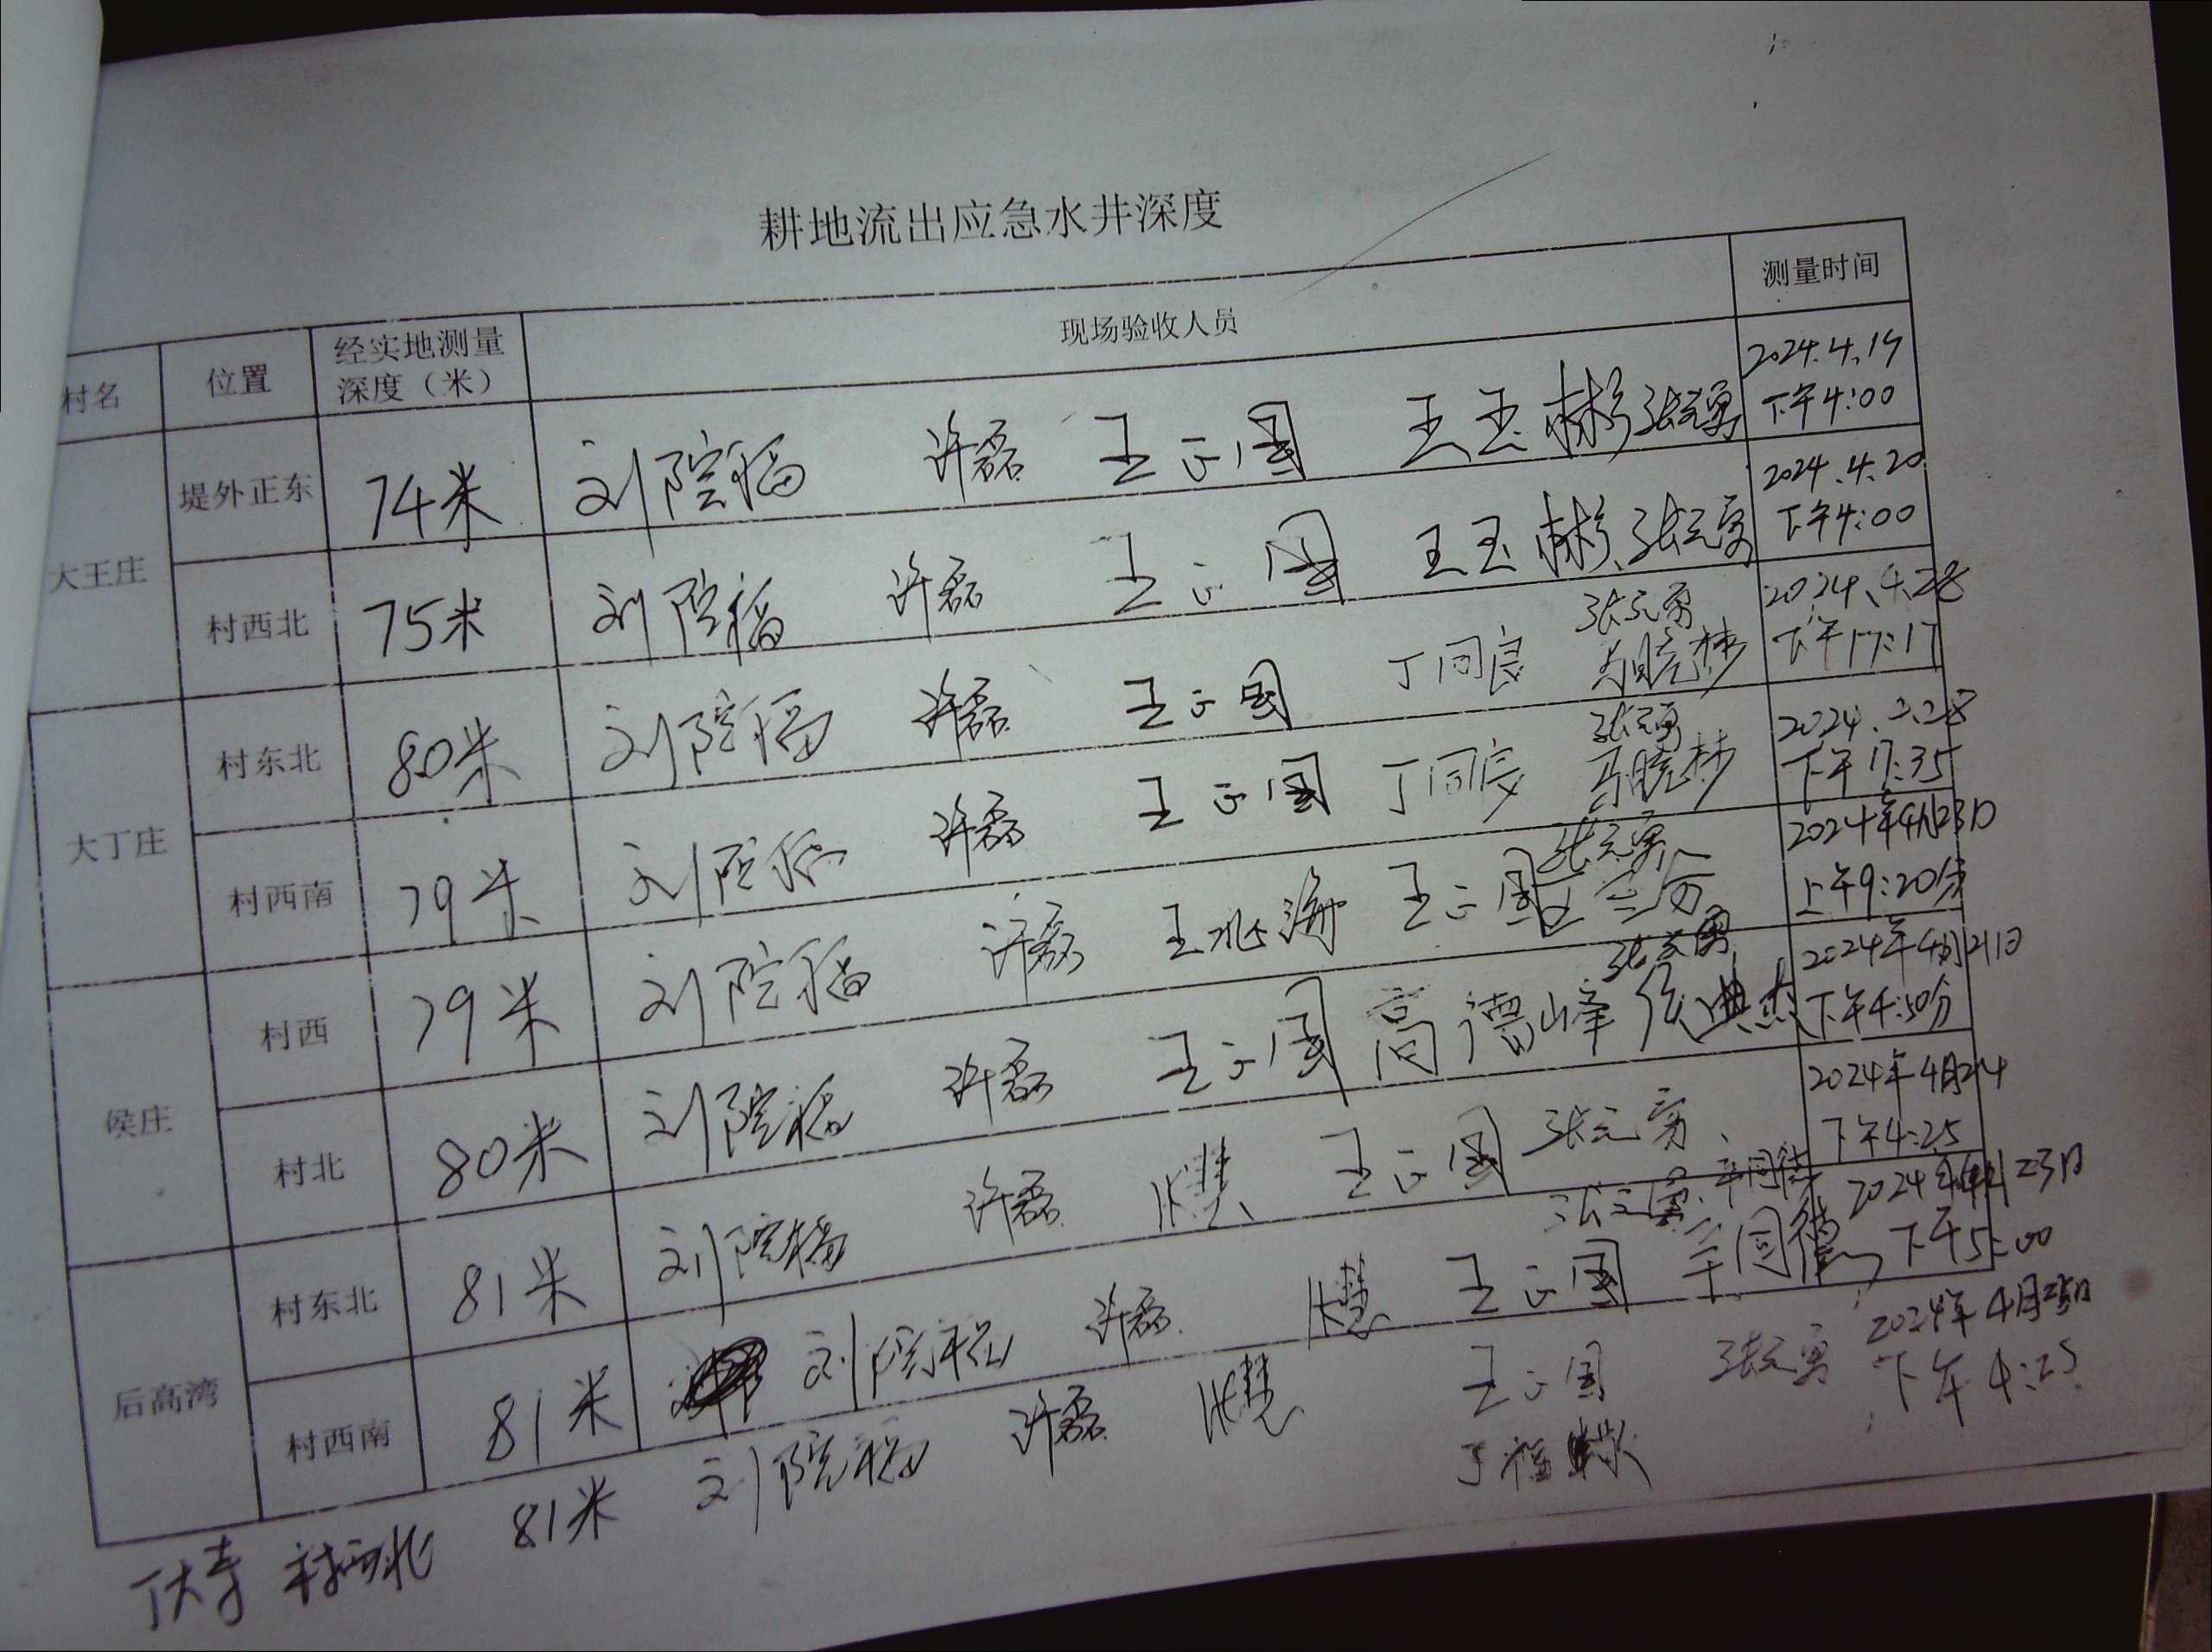 耕地流出应急水井深度
村名 位置 经实地测量深度（米） 现场验收人员 测量时间
大王庄 堤外正东 74米 刘院福 许磊 王正国 王玉彬 张元勇 2024.4.19 下午4:00
村西北 75米 刘院福 许磊 王正国 王玉彬 张元勇 2024.4.20 下午4:00
大丁庄 村东北 80米 刘院福 许磊 王正国 丁同良 张元勇 2024.4.28 下午17:17
村西南 79米 刘院福 许磊 王正国 丁同良 张元勇 2024. 下午17:35
侯庄 村西 79米 刘院福 许磊 王兆海 王正国 张元勇 2024年4月23日 上午9:20分
村北 80米 刘院福 许磊 王正国 高德峰 张元勇 2024年4月21日 下午4:50分
后高湾 村东北 81米 刘院福 许磊 王正国 张元勇 2024年4月24 下午4:25
村西南 81米 刘院福 许磊 王正国 张元勇 2024年4月23日 下午5:00
丁大寺 村西北 81米 刘院福 许磊 王正国 张元勇 2024年4月25日 下午4:25